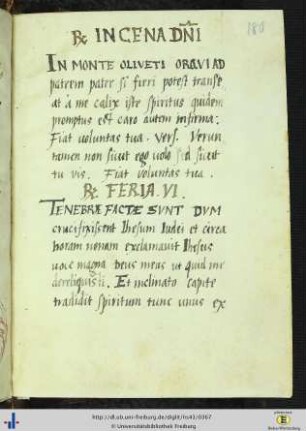 ℞ IN CENA DÑI
IN MONTE OLIVETI ORAVI AD
patrem pater si fieri potest transe
at a me calix iste spiritus quidem
promptus est caro autem infirma:
Fiat voluntas tua. Vers. Verun
tamen non sicut ego volo sed sicut
tu vis. Fiat voluntas tua.
℞. FERIA. VI.
TENEBRÆ FACTÆ SUNT DVM
crucifixissent Ihesum Iudei et circa
horam nonam exclamavit Ihesus
voce magna deus meus ut quid me
dereliquisti. Et inclinato capite
tradidit spiritum tunc unus ex
http://dl.ub.uni-freiburg.de/diglit/hs43/0367
© Universitätsbibliothek Freiburg